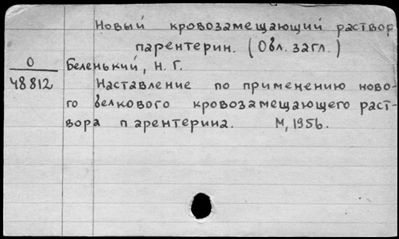 Новый кровозамещающий раствор
парентерин. (Обл. загл.)
О
48812
Беленький, Н. Г.
Наставление по применению ново-
го белкового кровозамещающего раст-
вора парентерина. М, 1956.